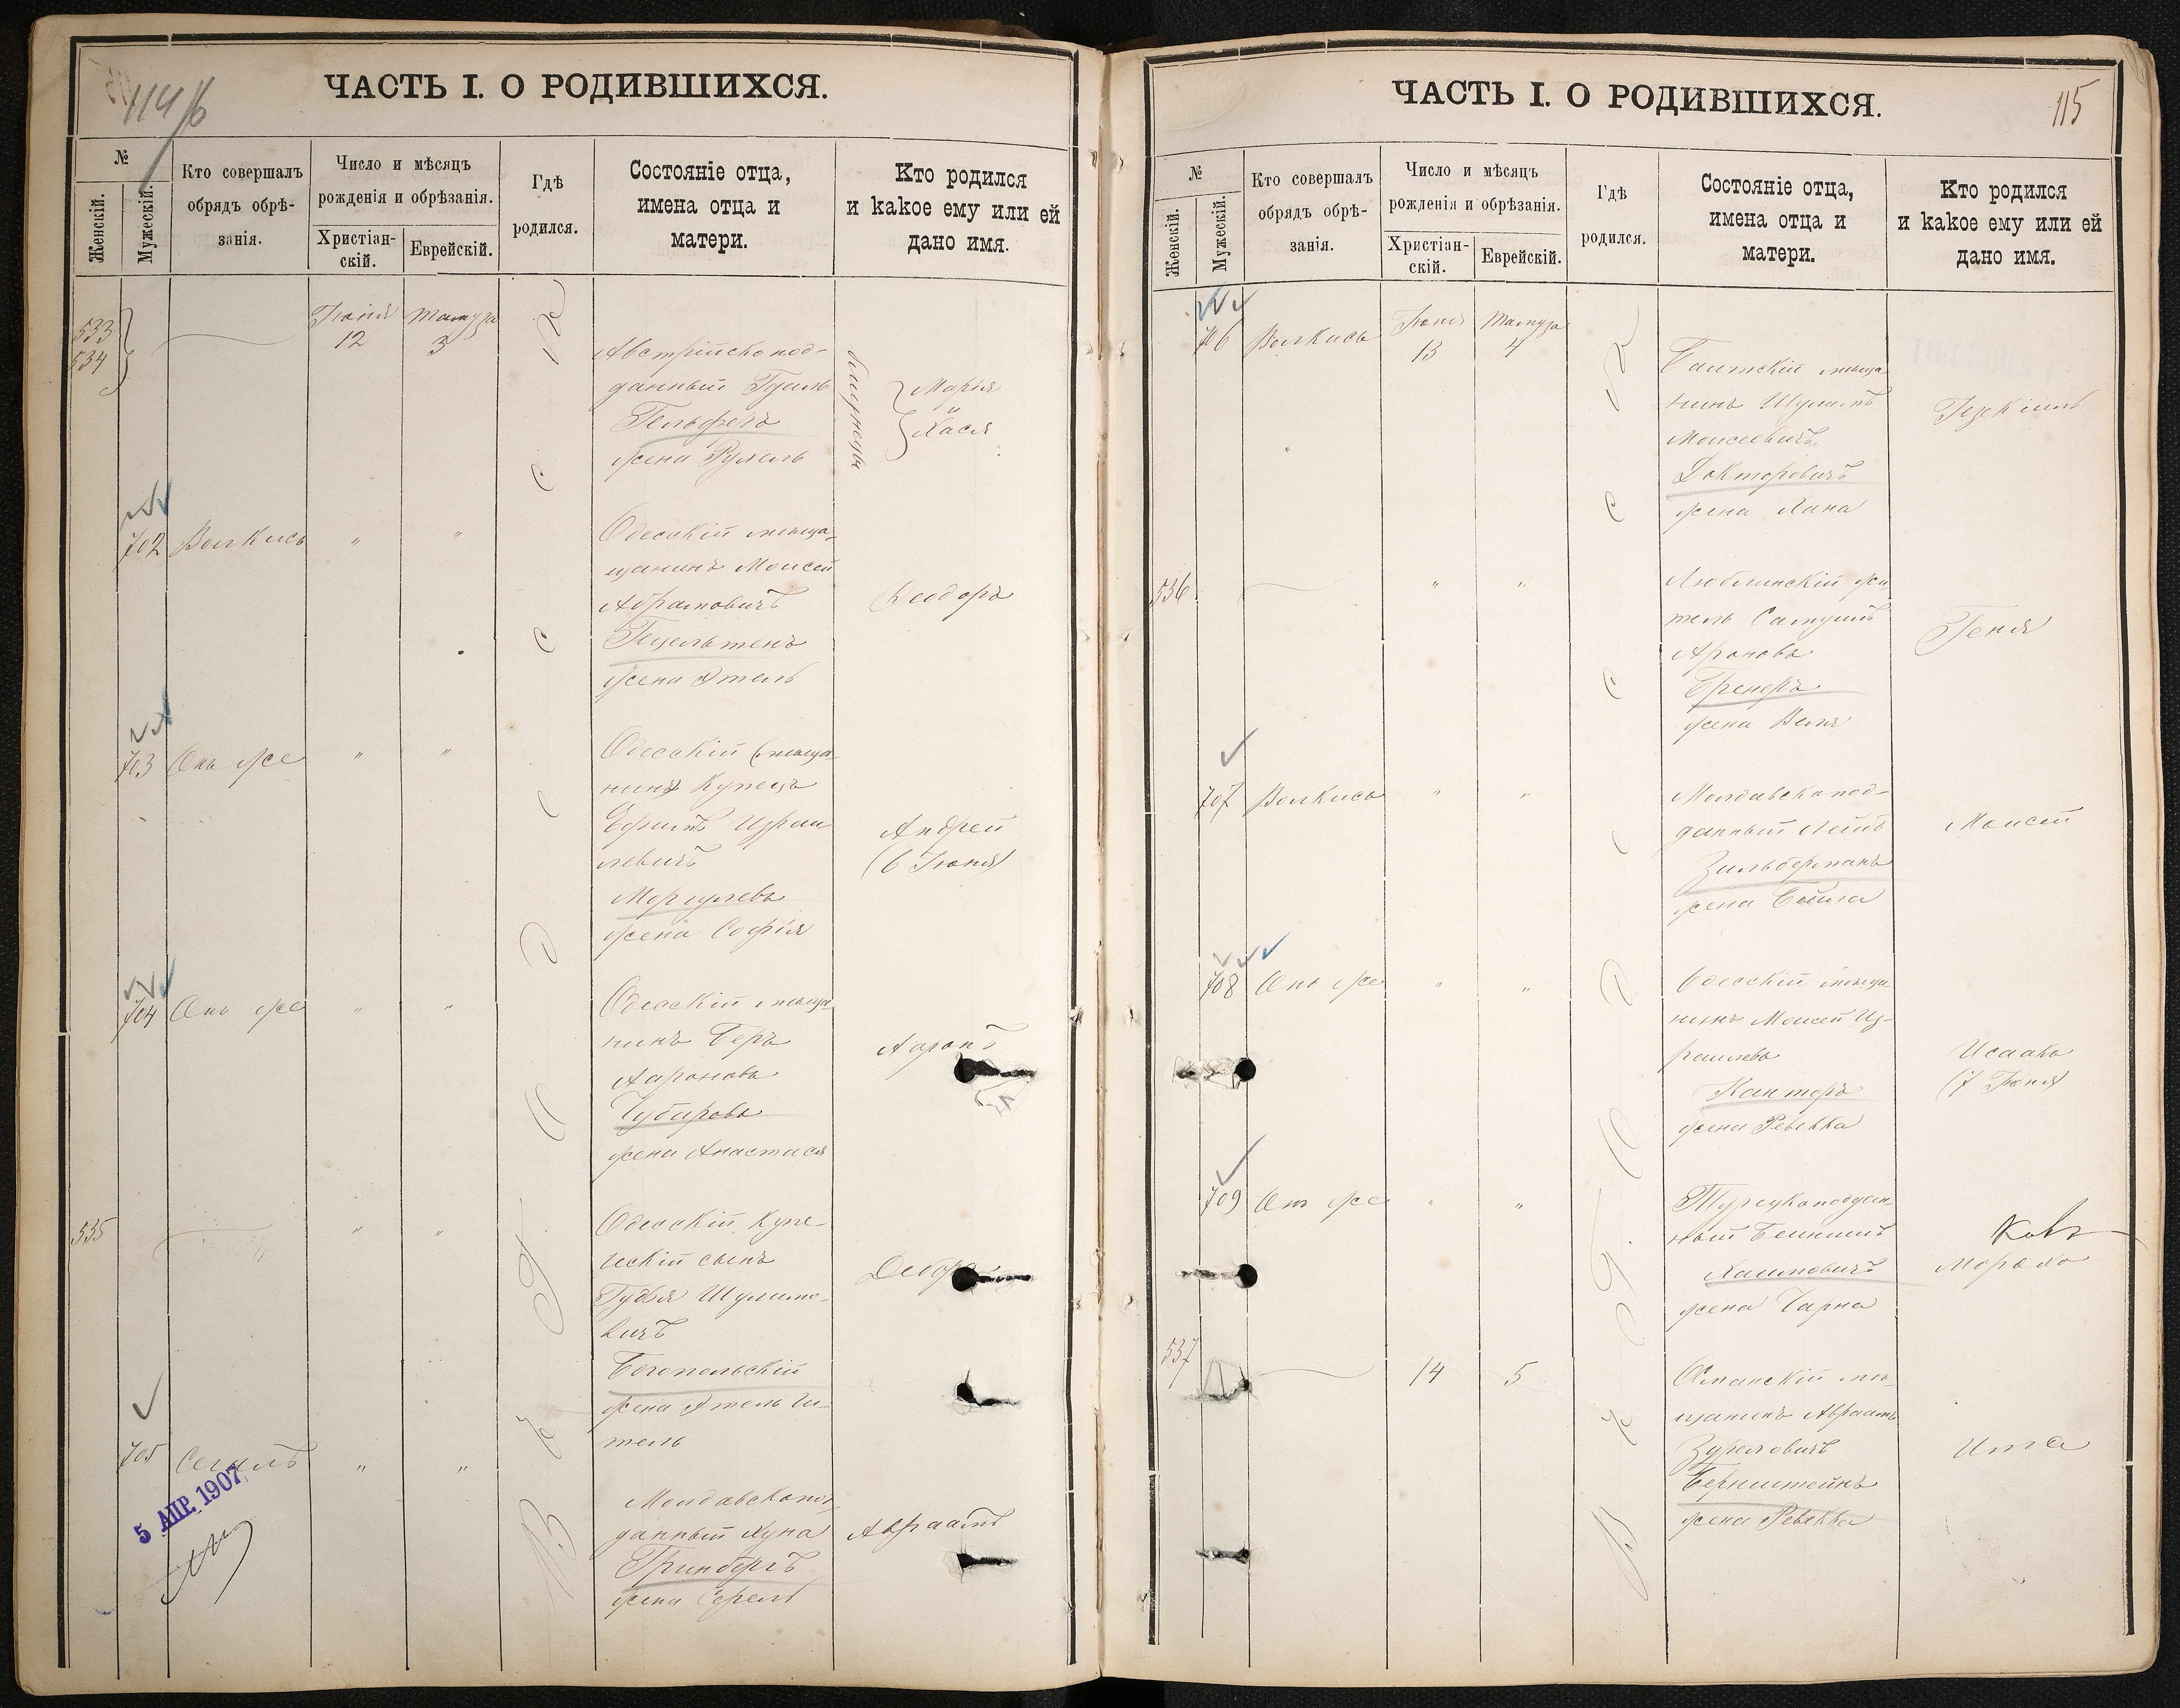 114/б
ЧАСТЬ I. О РОДИВШИХСЯ.
№
Женскій.
Мужескій.
Кто совершалъ
обрядъ обрѣ-
занія.
Число и мѣсяцъ
рожденія и обрѣзанія.
Христіан-
скій.
Еврейскій.
Гдѣ
родился.
Состояніе отца,
имена отца и
матери.
Кто родился
и какое ему или ей
дано имя.
Въ г. Одессѣ
533
534
Іюня
12
Тамуза
3
Австрійскопод-
данный
Гельферъ
жена Рухель
близнецы
Марія
и
Хася
702
Волкисъ
" "
Одесскій мѣща-
щанинъ Моисей
Абрамовичъ
жена Этель
Ѳеодоръ
703
Онъ же
" "
Одесскій (мѣща-
нинъ) Купецъ
Ефимъ Израи
левичъ
Моргулевъ
жена Софія
Андрей
(6 Іюня)
704
Онъ же
" "
Одесскій мѣща-
нинъ Беръ
Аароновъ
Чубаровъ
жена Анастасія
Ааронъ
535
" "
Одесскій купе-
ческій сынъ
Шулимо-
вичъ
Богопольскій
жена Этель Ги-
тель
705
Сегаль
" "
Молдавскопод-
данный Хуна
Гринбергъ
жена Сурель
Авраамъ
5 АПР. 1907
ЧАСТЬ I. О РОДИВШИХСЯ.
115
№
Женскій.
Мужескій.
Кто совершалъ
обрядъ обрѣ-
занія.
Число и мѣсяцъ
рожденія и обрѣзанія.
Христіан-
скій.
Еврейскій.
Гдѣ
родился.
Состояніе отца,
имена отца и
матери.
Кто родился
и какое ему или ей
дано имя.
Въ г. Одессѣ
706
Волкисъ
Іюня
13
Тамуза
4
Балтскій мѣща
нинъ Шулимъ
Моисеевичъ
Докторовичъ
жена Хана
Іезекіиль
536
" "
Люблинскій жи
тель Самуилъ
Ароновъ
жена Веля
Геня
707
Волкисъ
" "
Молдавскопод-
данный Лейбъ
Зильберманъ
жена Бейла
Моисей
708
Онъ же
" "
Одесскій мѣща
нинъ Моисей Из-
раилевъ
Канторъ
жена Ревекка
Исаакъ
(7 Іюня)
709
Онъ же
" "
Турецкоподдан-
ный
Хаимовичъ
жена Чарна
Мордко
537
14
5
мѣ-
щанинъ Авраамъ
Бернштейнъ
жена Ревекка
Ита